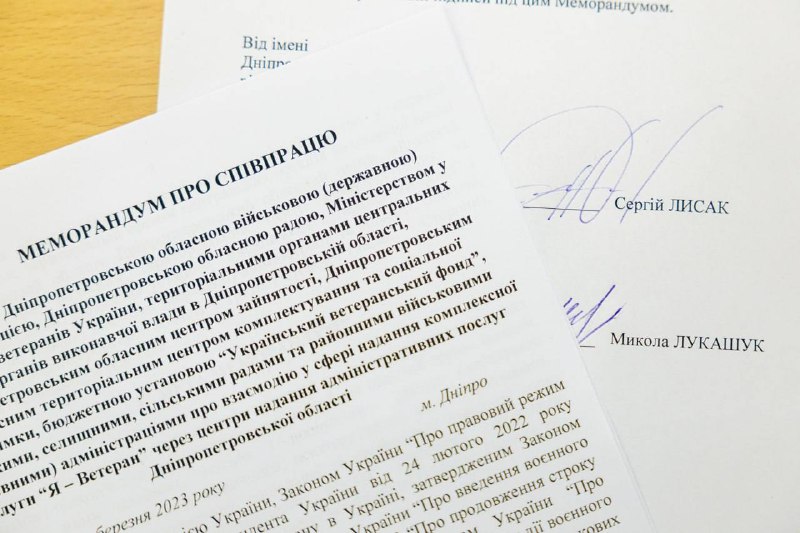 під цим Меморандумом.
Від імені
Сергій ЛИСАК
Микола ЛУКАШУК
МЕМОРАНДУМ ПРО СПІВПРАЦЮ
Дніпропетровською обласною військовою (державною)
цією, Дніпропетровською обласною радою, Міністерством у
ветеранів України, територіальними органами центральних
рганів виконавчої влади в Дніпропетровській області,
петровським обласним центром зайнятості, Дніпропетровським
сним територіальним центром комплектування та соціальної
имки, бюджетною установою “Український ветеранський фонд”,
кими, селищними, сільськими радами та районними військовими
авними) адміністраціями про взаємодію у сфері надання комплексної
слуги “Я – Ветеран” через центри надання адміністративних послуг
Дніпропетровської області
м. Дніпро
березня 2023 року
цією України, Законом України “Про правовий режим
идента України від 24 лютого 2022 року
ну в Україні, затвердженим Законом
України “Про введення воєнного
“Про продовження строку
України “Про
дії воєнного
кових